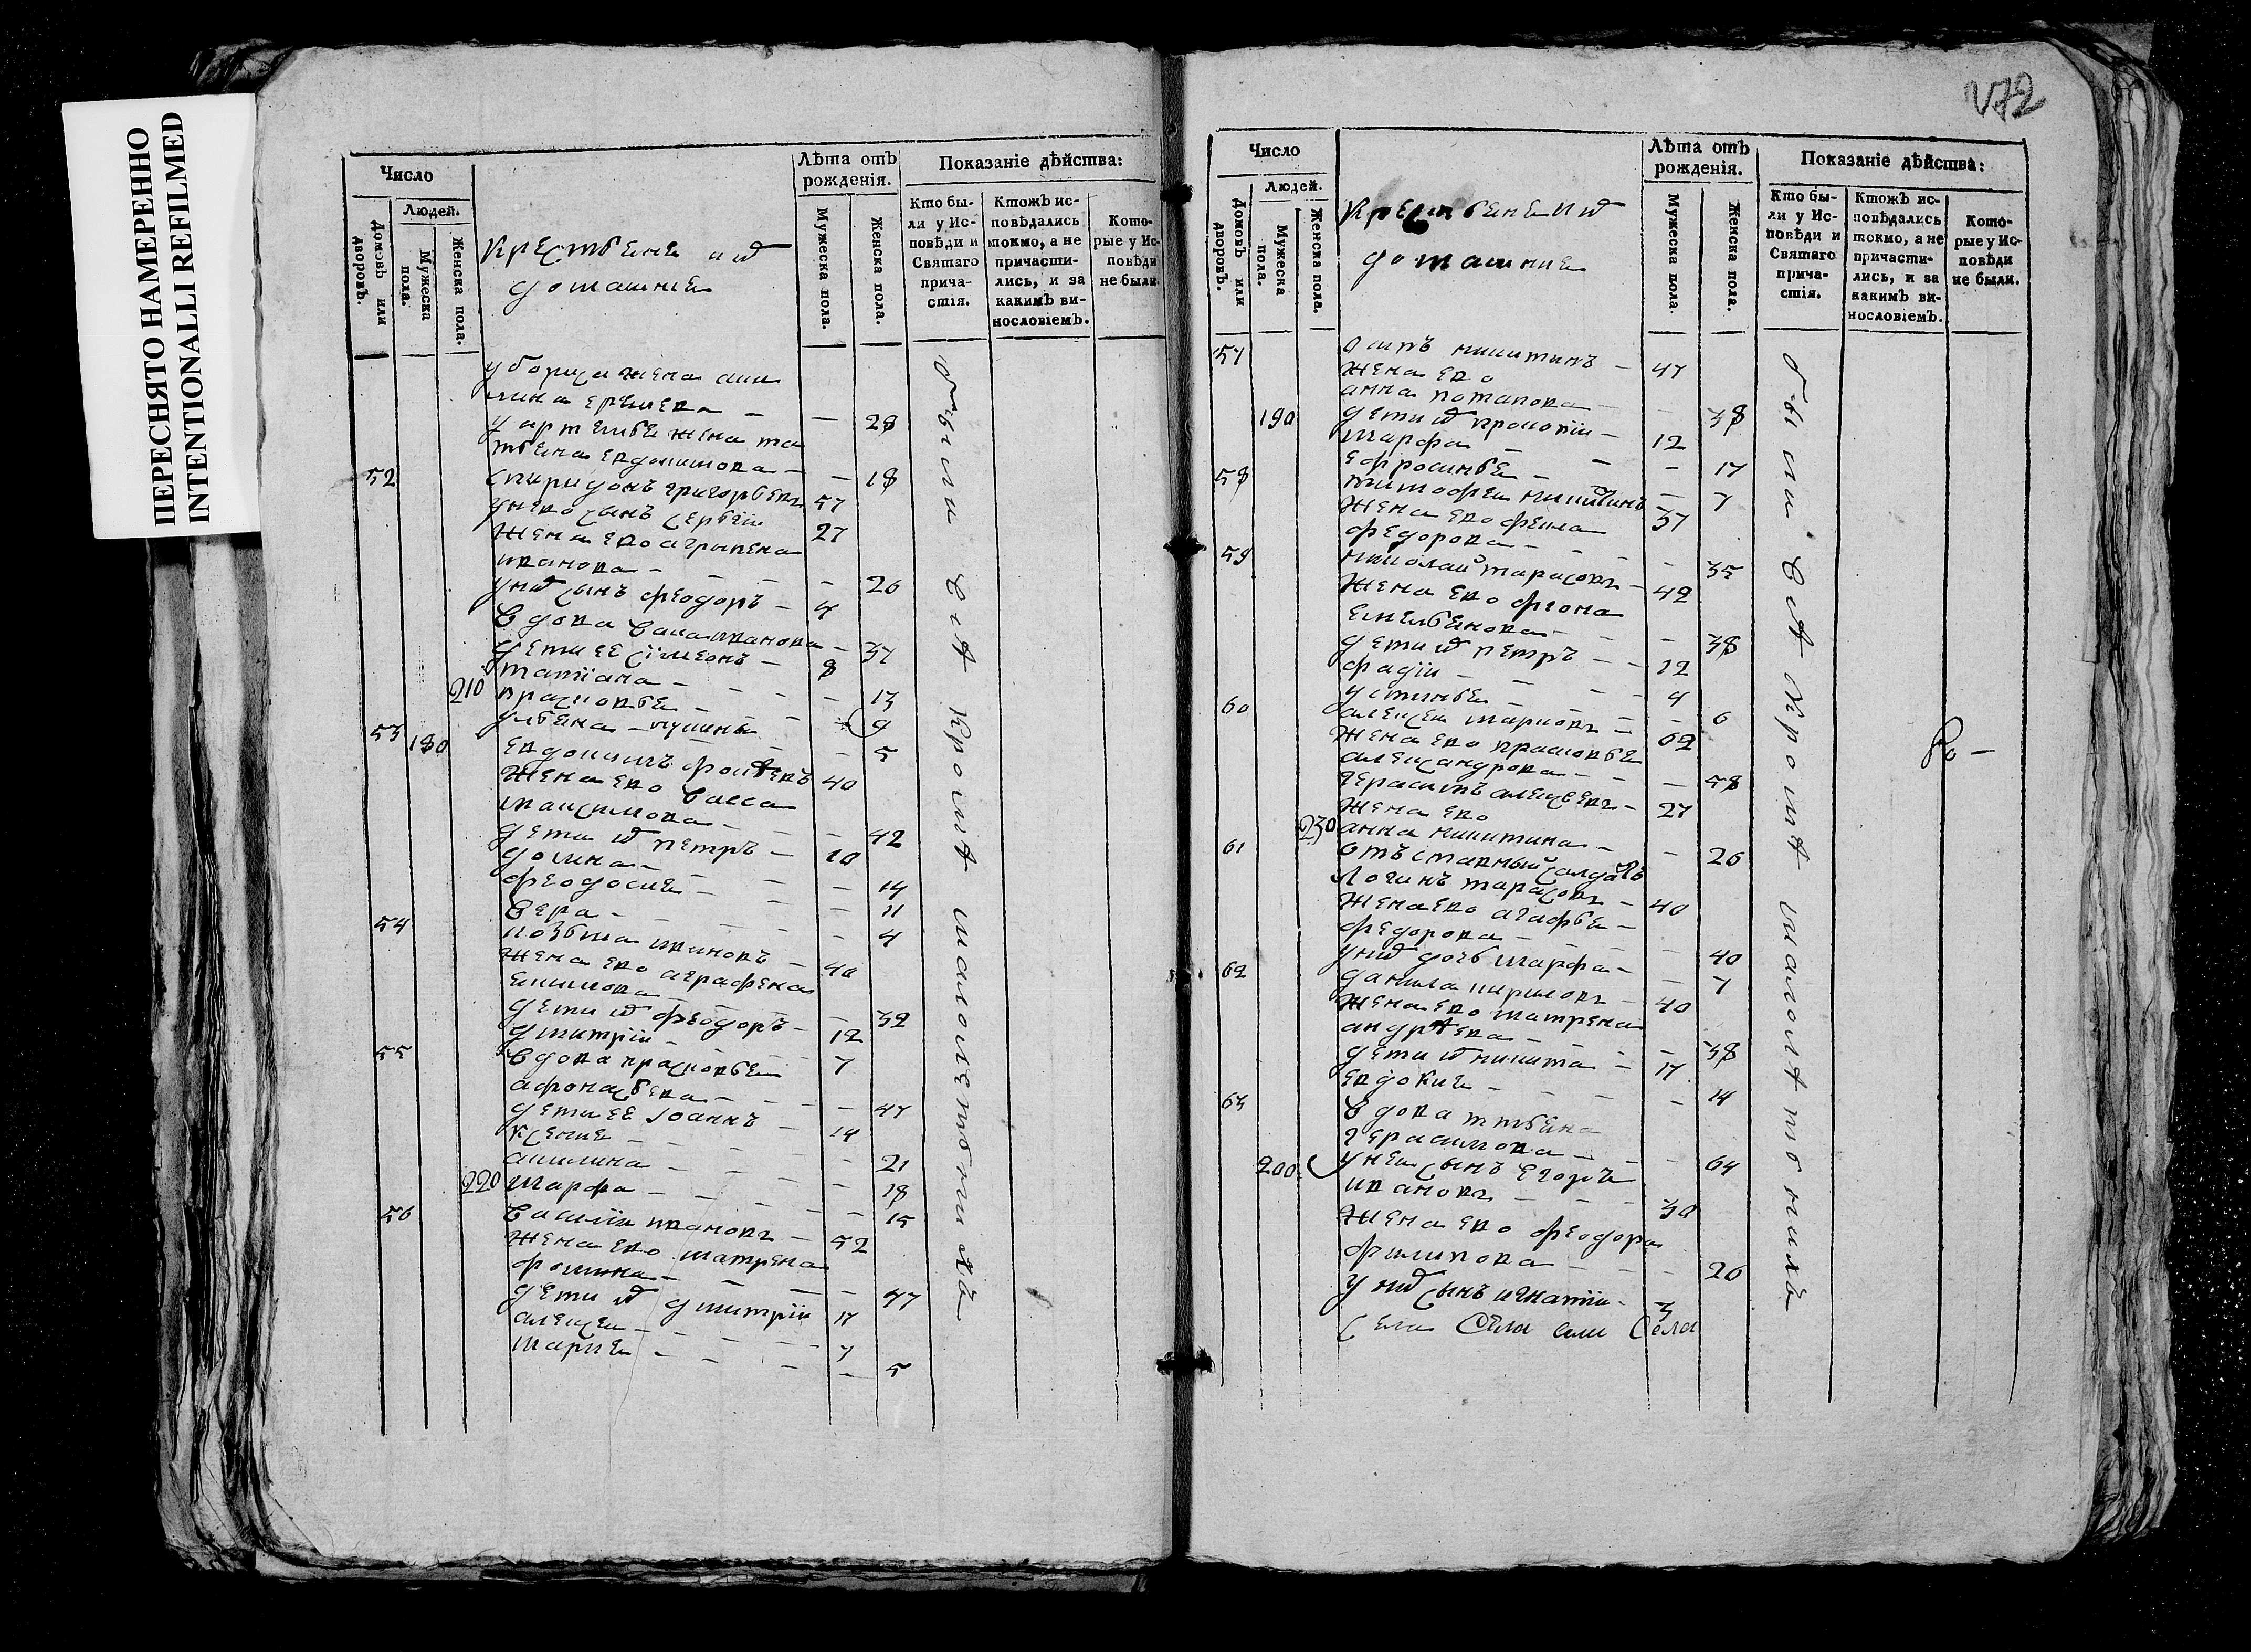 ПЕРЕСНЯТО НАМЕРЕННО
INTENTIONALLI REFILMED
Число
Людей.
Домовъ или дворовъ.
Мужеска пола.
Женска пола.
крестьяне и ѿ
домашние
Лѣта отъ рожденія.
Мужеска пола.
Женска пола.
Показаніе дѣйства:
Кто бы-
ли у Ис-
повѣди и
Святаго
прича-
стія.
Ктожъ ис-
повѣдались
токмо, а не
причасти-
лись, и за
какимъ ви-
нословіемъ.
Кото-
рые у Ис-
повѣди
не были.
у бориса жена аки
лина ермиева — — 28
у артемье жена та
тьяна евдокимова — — 18
52 спиридонъ григорьевъ 57
у нево сынъ сергѣи 27
жена ево агрыпена
иванова — — 26
у ниѿ сынъ феодоръ — 4
вдова васа иванова — 37
дети ее симеонъ — 8
татиана — — 13
210 прасковье — — 9
ульяна — — 5
53 180 евдокимъ фокѣевъ 40
жена ево васса
максимова — — 42
дети иѿ петръ — 10
домна — — 14
феодосие — — 11
вера — — 4
54 козьма иванов — 40
жена ево аграфена
екимова — — 32
дети иѿ феодоръ — 12
дмитрии — 7
55 вдова прасковье
афонасьева — — 47
дети ее иоаннъ — 14
ксение — — 21
акилина — — 18
220 марфа — — 15
56 василии иванов — 52
жена ево матрена
фомина — — 47
дети иѿ дмитрии 17
алексеи — 7
марие — — 5
были вѣ кромѣ малолетныхъ
172
Число
Людей.
Домовъ или дворовъ.
Мужеска пола.
Женска пола.
крестьяне и ѿ
домашние
Лѣта отъ рожденія.
Мужеска пола.
Женска пола.
Показаніе дѣйства:
Кто бы-
ли у Ис-
повѣди и
Святаго
прича-
стія.
Ктожъ ис-
повѣдались
токмо, а не
причасти-
лись, и за
какимъ ви-
нословіемъ.
Кото-
рые у Ис-
повѣди
не были.
57 осипъ никитинъ — 47
жена ево
анна потапова — — 38
190 дети иѿ прокопии — 12
марфа — — 17
ефросинье — — 7
58 тимофеи никитинъ — 37
жена ево фекла
федорова — — 35
59 николаи тарасовъ — 42
жена ево фиона
емельянова — — 38
дети иѿ петръ — 12
фадии — 4
устинье — — 6
60 алексеи марковъ — 62
жена ево прасковье
александрова — — 58
герасимъ алексеевъ — 27
жена ево
230 анна никитина — — 26
61 отъставный салдатъ
логинъ тарасовъ — 40
жена ево агафье —
федорова — — 40
у ниѿ дочь марфа — — 7
62 данила кирилов — 40
жена ево матрена
андрѣева — — 38
дети иѿ никита — 17
евдокие — — 14
63 вдова татьяна
герасимова — — 64
200 у неи сынъ егоръ
иванов — 30
жена ево феодора
филипова — — 26
у ниѿ сынъ игнатии — 3
были вѣ кромѣ малолѣтныхъ